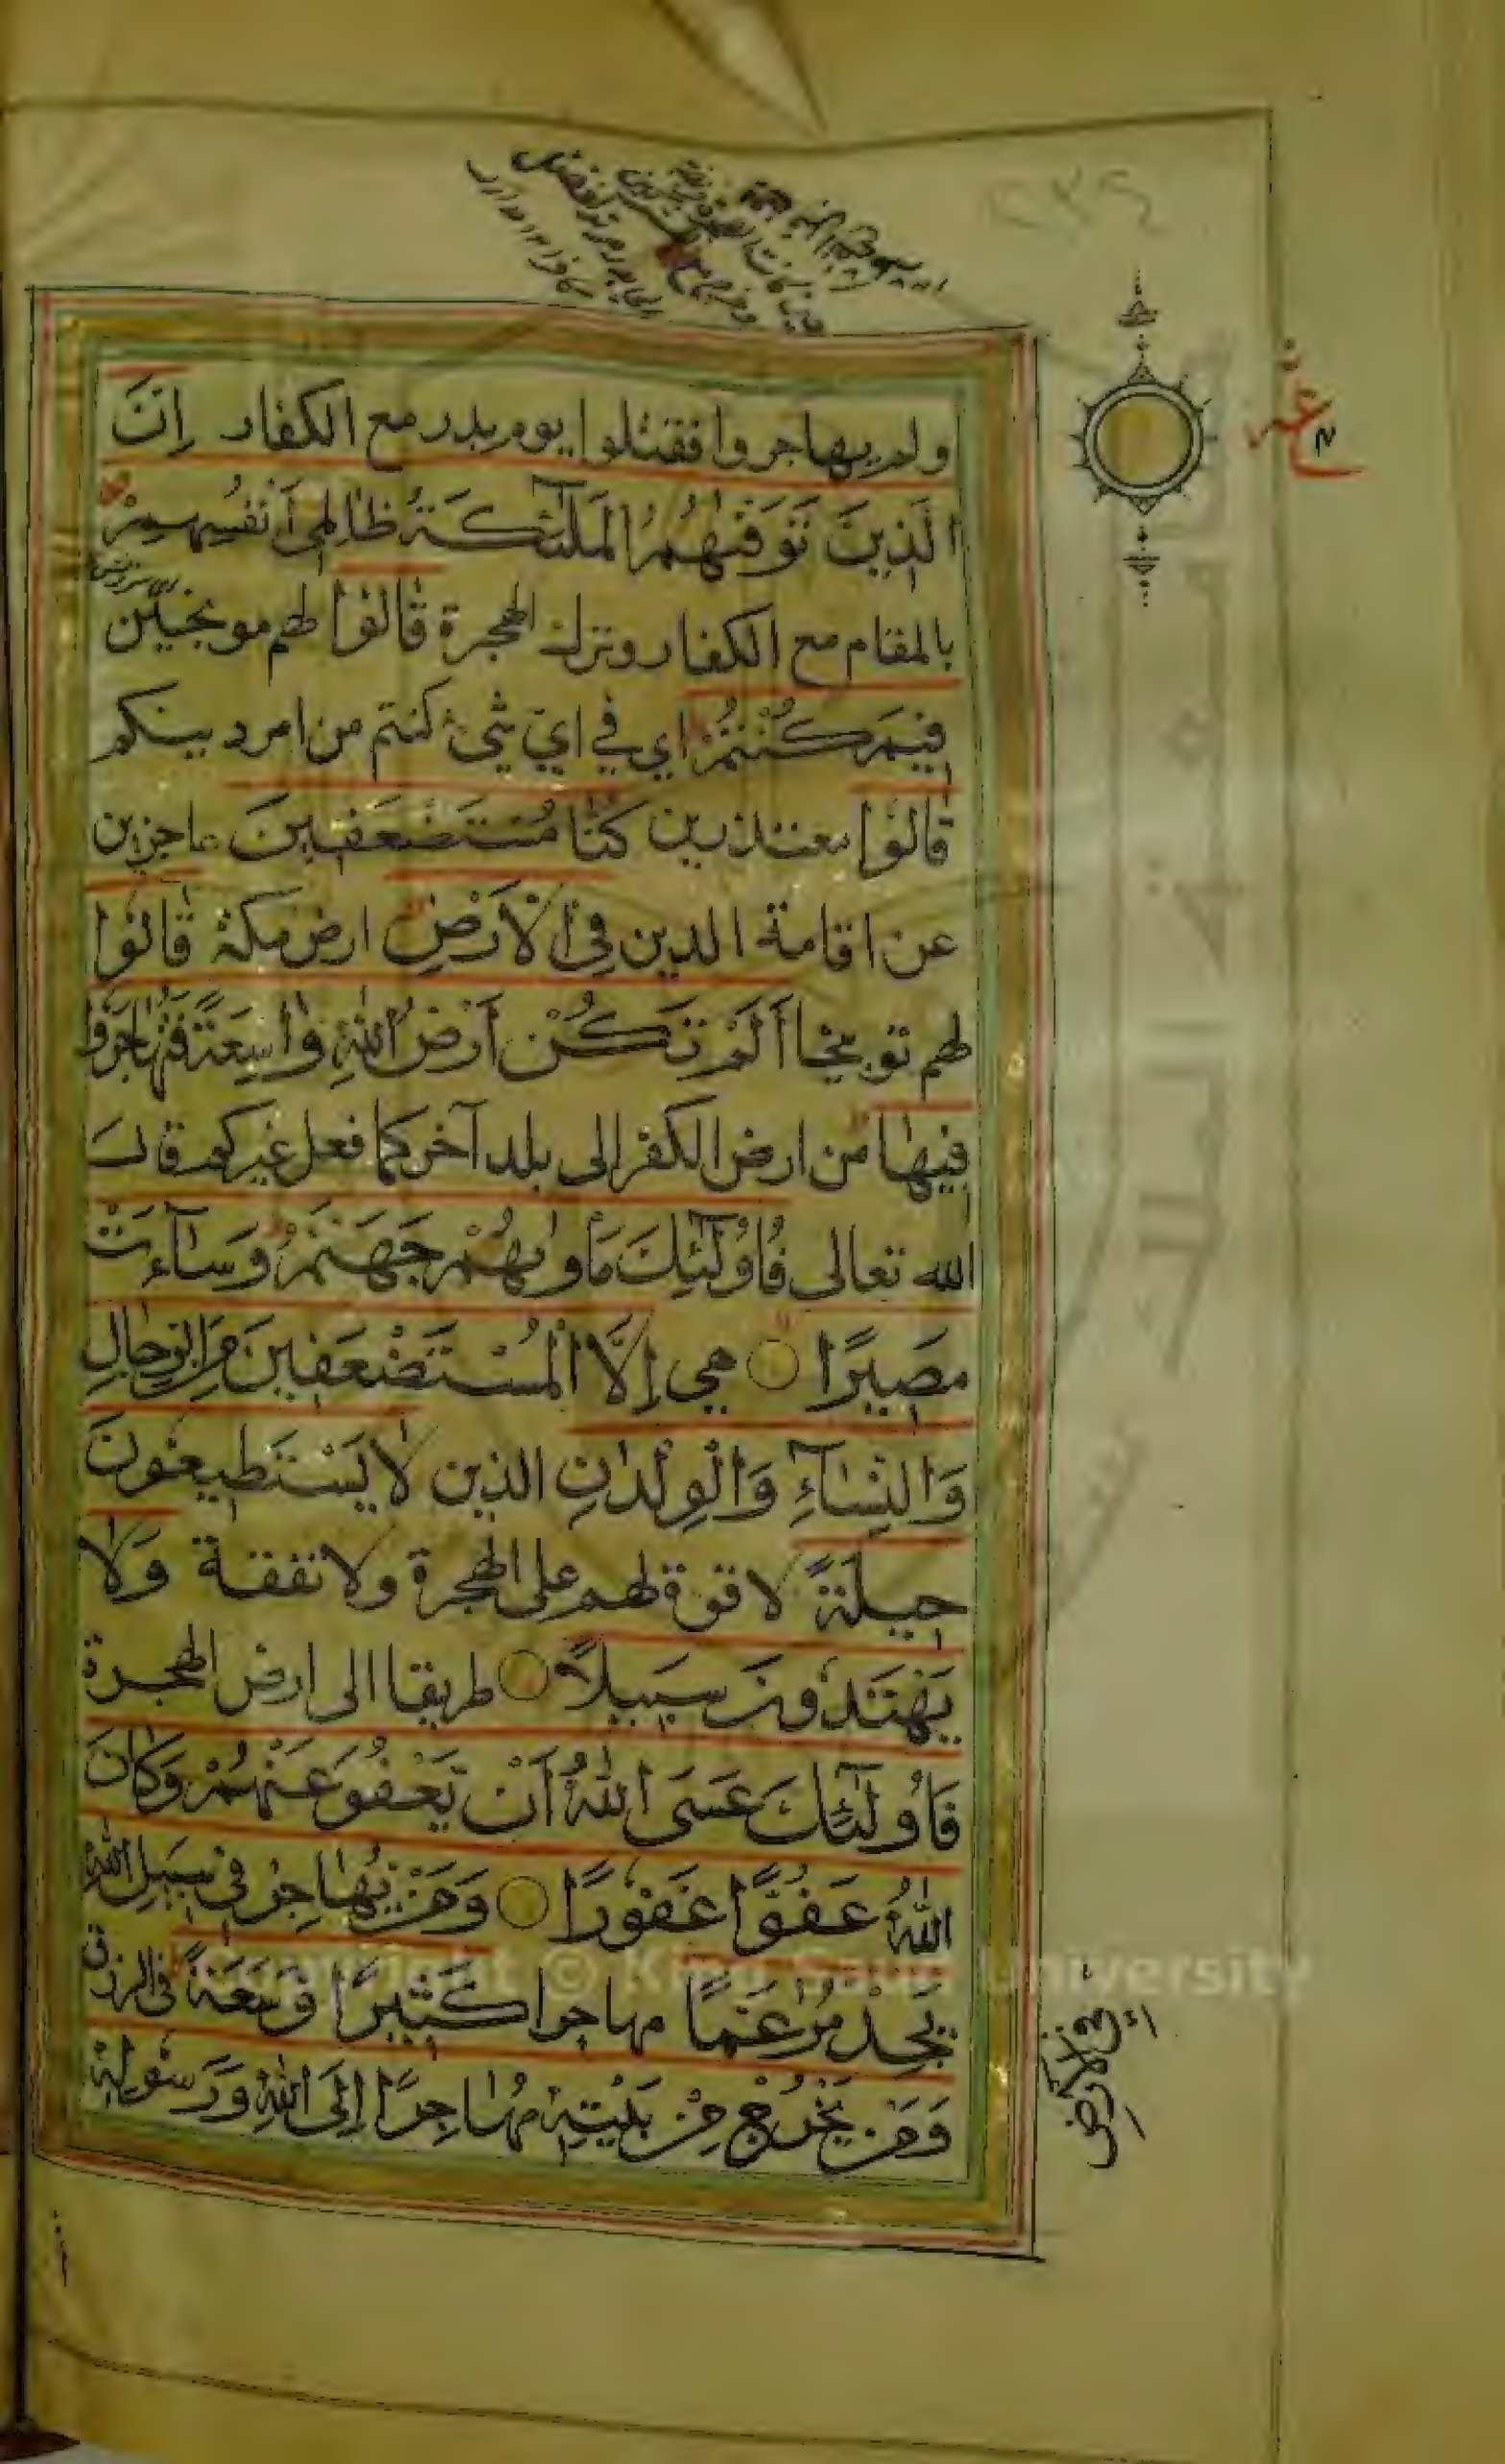 ولم يهاجروا فقتلوا يوم بدر مع الكفار إِنَّ
الَّذِينَ تَوَفّٰىهُمُ الْمَلٰٓئِكَةُ ظَالِمِىٓ أَنْفُسِهِمْ
بالمقام مع الكفار وترك الهجرة قَالُوْا لهم موبخين
فِيمَ كُنْتُمْ اي في ايّ شيء كنتم من امر دينكم
قَالُوْا معتذرين كُنَّا مُسْتَضْعَفِينَ عاجزين
عن اقامة الدين فِى الْأَرْضِ ارض مكة قَالُوْا
لهم توبيخا أَلَمْ تَكُنْ أَرْضُ اللّٰهِ وَاسِعَةً فَتُهَاجِرُوْا
فِيهَا من ارض الكفر الى بلد آخر كما فعل غيركم قال
الله تعالى فَأُولٰٓئِكَ مَأْوٰىهُمْ جَهَنَّمُ وَسَآءَتْ
مَصِيرًا هي إِلَّا الْمُسْتَضْعَفِينَ مِنَ الرِّجَالِ
وَالنِّسَآءِ وَالْوِلْدَانِ الذين لَا يَسْتَطِيعُونَ
حِيلَةً لا قوة لهم على الهجرة ولا نفقة وَلَا
يَهْتَدُونَ سَبِيلًا طريقا الى ارض الهجرة
فَأُولٰٓئِكَ عَسَى اللّٰهُ أَنْ يَعْفُوَ عَنْهُمْ وَكَانَ
اللّٰهُ عَفُوًّا غَفُورًا وَمَنْ يُهَاجِرْ فِى سَبِيلِ اللّٰهِ
يَجِدْ مُرٰغَمًا مهاجرا كَثِيرًا وَسَعَةً فى الرزق
وَمَنْ يَخْرُجْ مِنْ بَيْتِهِ مُهَاجِرًا إِلَى اللّٰهِ وَرَسُولِهِ
فى الأرض
Copyright © King Saud University